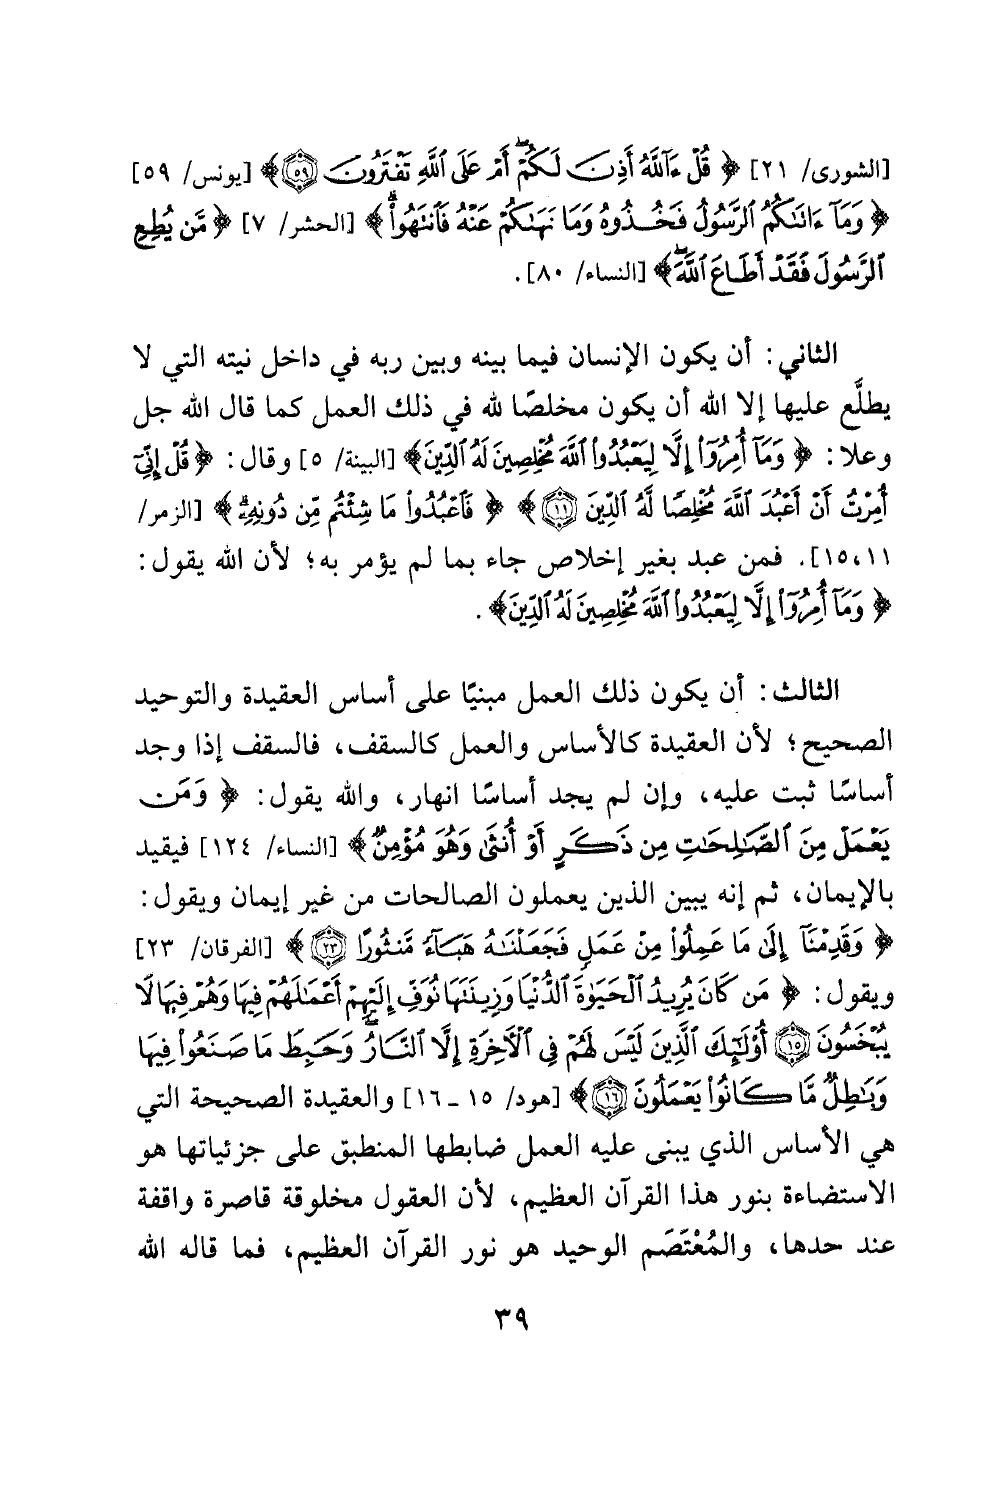 [الشورى/ ٢١] ﴿ قُلْ ءَآللَّهُ أَذِنَ لَكُمْ أَمْ عَلَى ٱللَّهِ تَفْتَرُونَ ۝٥٩﴾ [يونس/ ٥٩]
﴿ وَمَآ ءَاتَىٰكُمُ ٱلرَّسُولُ فَخُذُوهُ وَمَا نَهَىٰكُمْ عَنْهُ فَٱنتَهُوا۟ ﴾ [الحشر/ ٧] ﴿ مَّن يُطِعِ
ٱلرَّسُولَ فَقَدْ أَطَاعَ ٱللَّهَ ﴾ [النساء/ ٨٠].
الثاني: أن يكون الإنسان فيما بينه وبين ربه في داخل نيته التي لا
يطلَّع عليها إلا الله أن يكون مخلصًا لله في ذلك العمل كما قال الله جل
وعلا: ﴿ وَمَآ أُمِرُوٓا۟ إِلَّا لِيَعْبُدُوا۟ ٱللَّهَ مُخْلِصِينَ لَهُ ٱلدِّينَ ﴾ [البينة/ ٥] وقال: ﴿ قُلْ إِنِّىٓ
أُمِرْتُ أَنْ أَعْبُدَ ٱللَّهَ مُخْلِصًا لَّهُ ٱلدِّينَ ۝١١ ﴾ ﴿ فَٱعْبُدُوا۟ مَا شِئْتُم مِّن دُونِهِۦ ﴾ [الزمر/
١١،١٥]. فمن عبد بغير إخلاص جاء بما لم يؤمر به؛ لأن الله يقول:
﴿ وَمَآ أُمِرُوٓا۟ إِلَّا لِيَعْبُدُوا۟ ٱللَّهَ مُخْلِصِينَ لَهُ ٱلدِّينَ ﴾.
الثالث: أن يكون ذلك العمل مبنيًا على أساس العقيدة والتوحيد
الصحيح؛ لأن العقيدة كالأساس والعمل كالسقف، فالسقف إذا وجد
أساسًا ثبت عليه، وإن لم يجد أساسًا انهار، والله يقول: ﴿ وَمَن
يَعْمَلْ مِنَ ٱلصَّـٰلِحَـٰتِ مِن ذَكَرٍ أَوْ أُنثَىٰ وَهُوَ مُؤْمِنٌ ﴾ [النساء/ ١٢٤] فيقيد
بالإيمان، ثم إنه يبين الذين يعملون الصالحات من غير إيمان ويقول:
﴿ وَقَدِمْنَآ إِلَىٰ مَا عَمِلُوا۟ مِنْ عَمَلٍ فَجَعَلْنَـٰهُ هَبَآءً مَّنثُورًا ۝٢٣ ﴾ [الفرقان/ ٢٣]
ويقول: ﴿ مَن كَانَ يُرِيدُ ٱلْحَيَوٰةَ ٱلدُّنْيَا وَزِينَتَهَا نُوَفِّ إِلَيْهِمْ أَعْمَـٰلَهُمْ فِيهَا وَهُمْ فِيهَا لَا
يُبْخَسُونَ ۝١٥ أُو۟لَـٰٓئِكَ ٱلَّذِينَ لَيْسَ لَهُمْ فِى ٱلْـَٔاخِرَةِ إِلَّا ٱلنَّارُ وَحَبِطَ مَا صَنَعُوا۟ فِيهَا
وَبَـٰطِلٌ مَّا كَانُوا۟ يَعْمَلُونَ ۝١٦﴾ [هود/ ١٥ ـ ١٦] والعقيدة الصحيحة التي
هي الأساس الذي يبنى عليه العمل ضابطها المنطبق على جزئياتها هو
الاستضاءة بنور هذا القرآن العظيم، لأن العقول مخلوقة قاصرة واقفة
عند حدها، والمُعْتَصَم الوحيد هو نور القرآن العظيم، فما قاله الله
٣٩